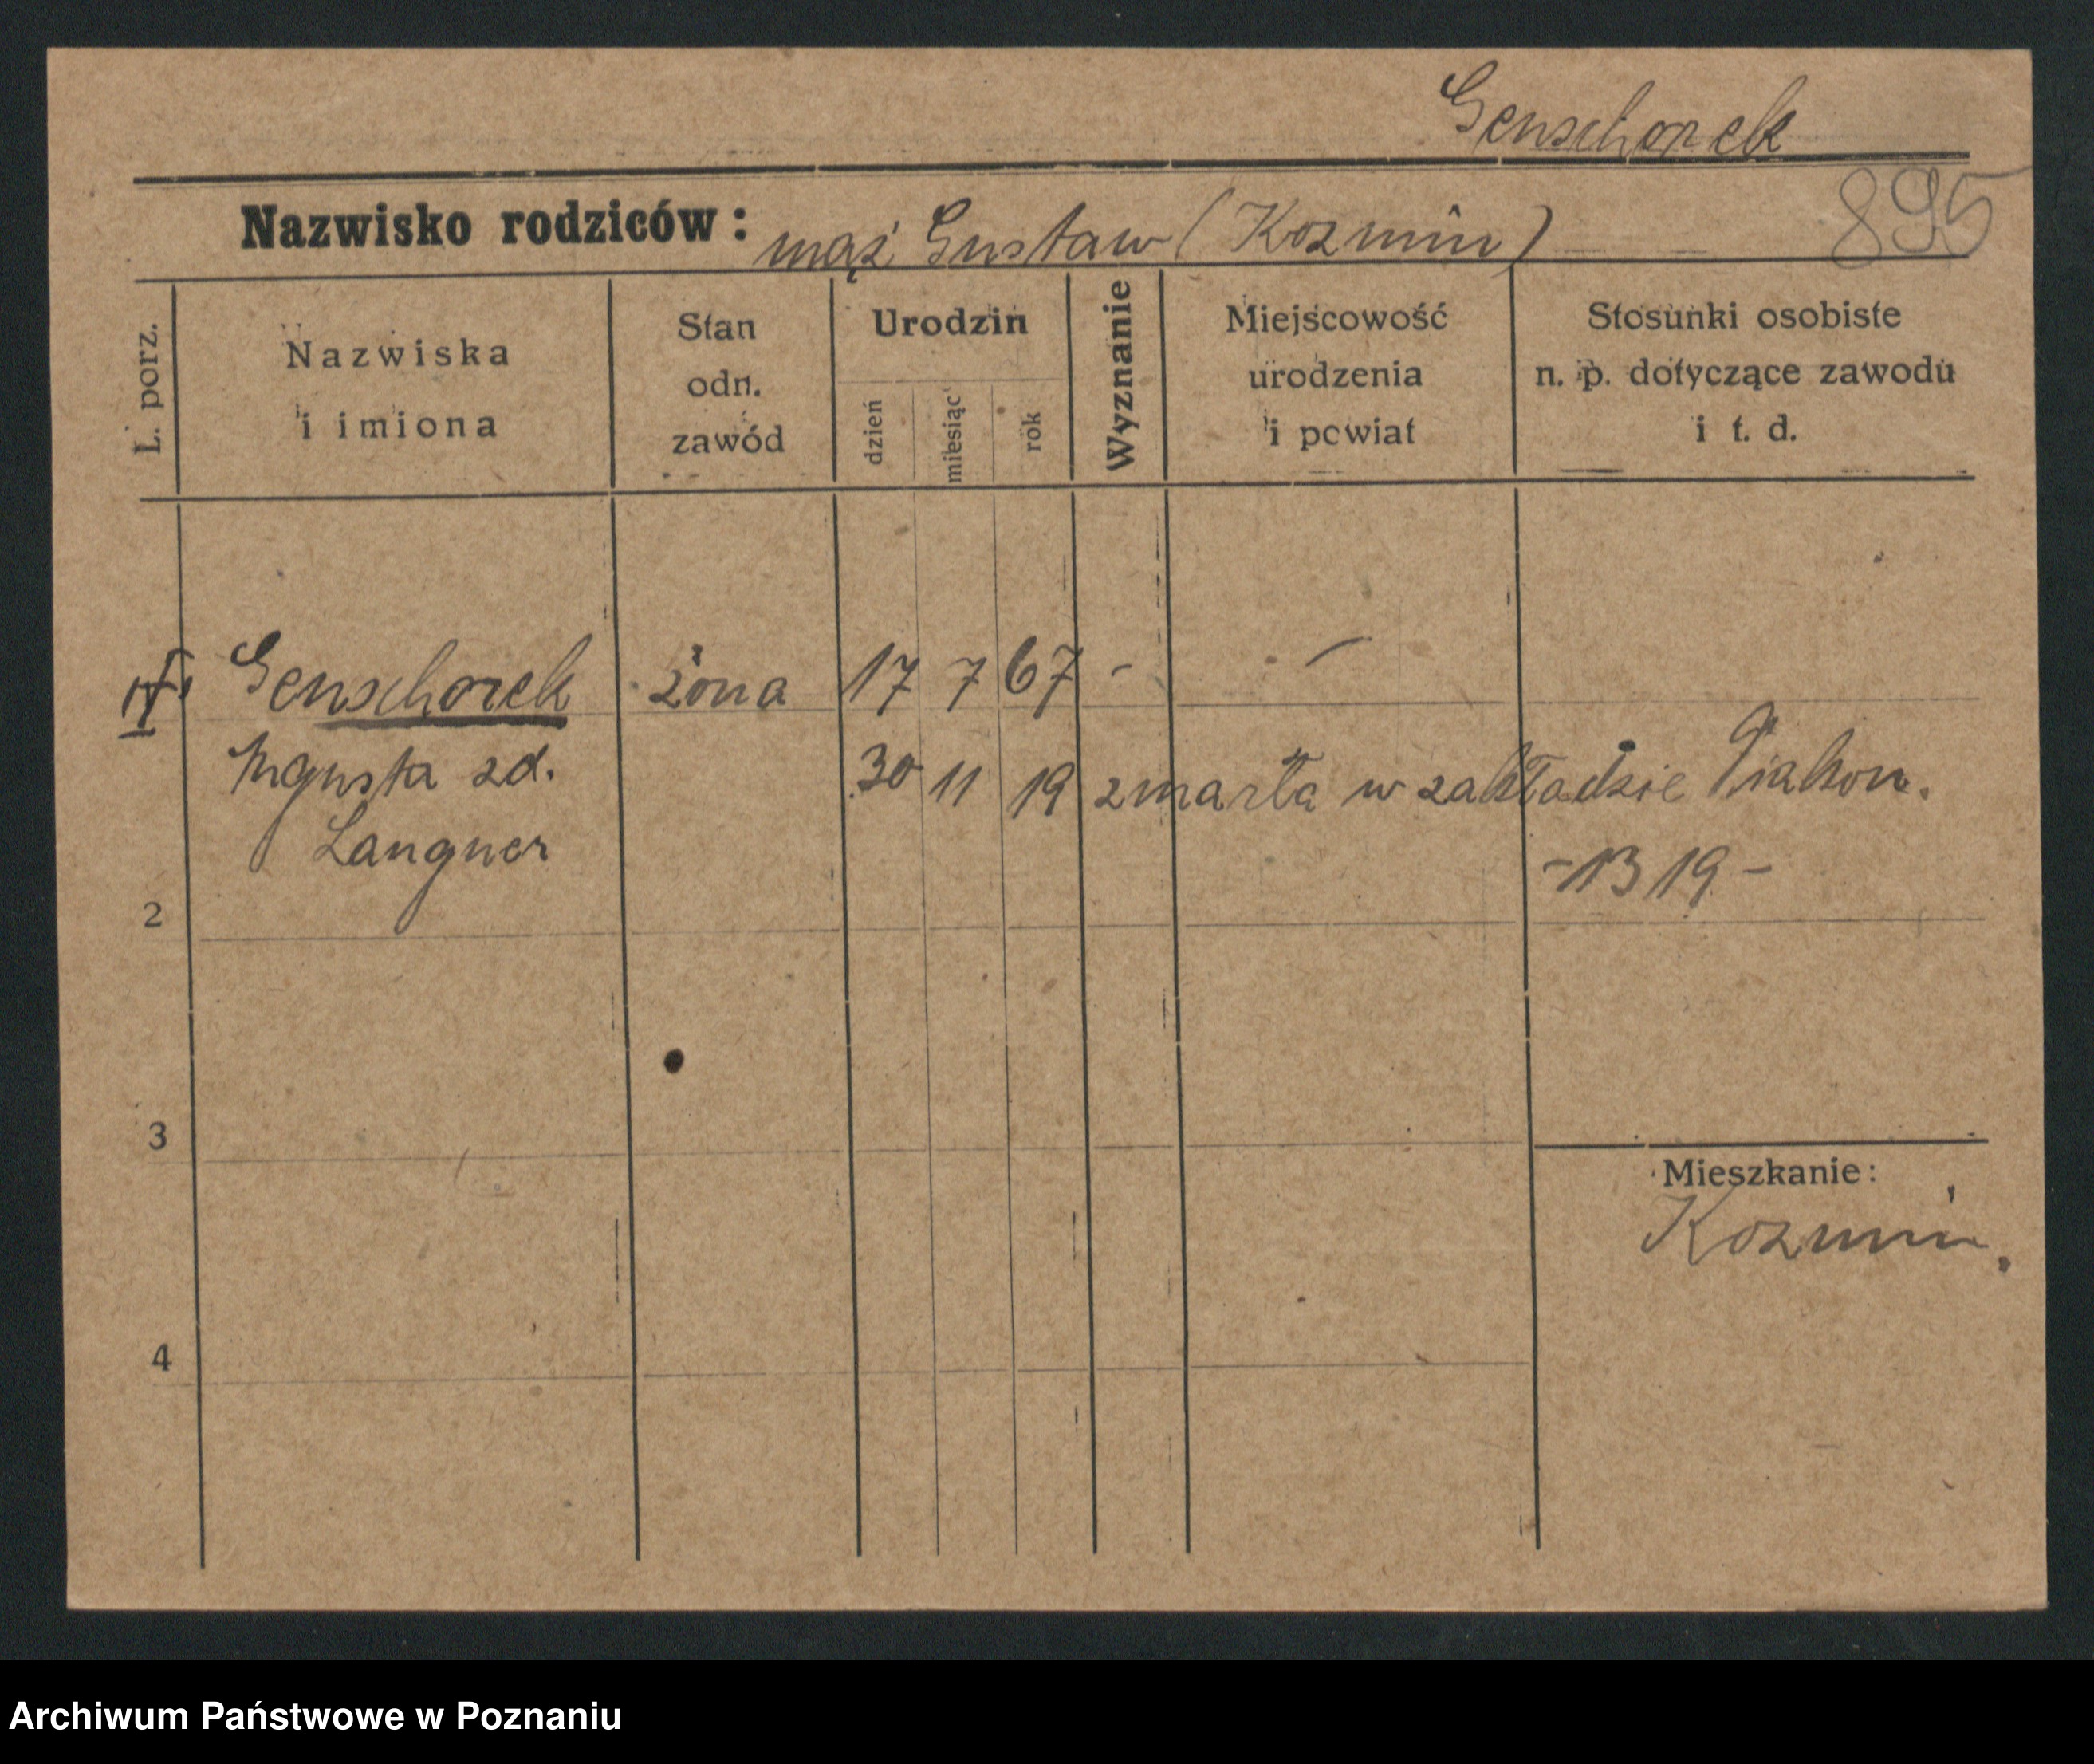 Genschorek
895
Nazwisko rodziców: mąż Gustaw (Kozmin)
L. porz.
Nazwiska
i imiona
Stan
odn.
zawód
Urodzin
dzień
miesiąc
rok
Wyznanie
Miejscowość
urodzenia
i powiat
Stosunki osobiste
n. p. dotyczące zawodu
i t. d.
Genschorek żona 17 7 67 - -
Augusta zd. 30 11 19 zmarła w zakładzie Diakon.
Langner -1319-
2
3
Mieszkanie:
Kozmin.
4
Archiwum Państwowe w Poznaniu